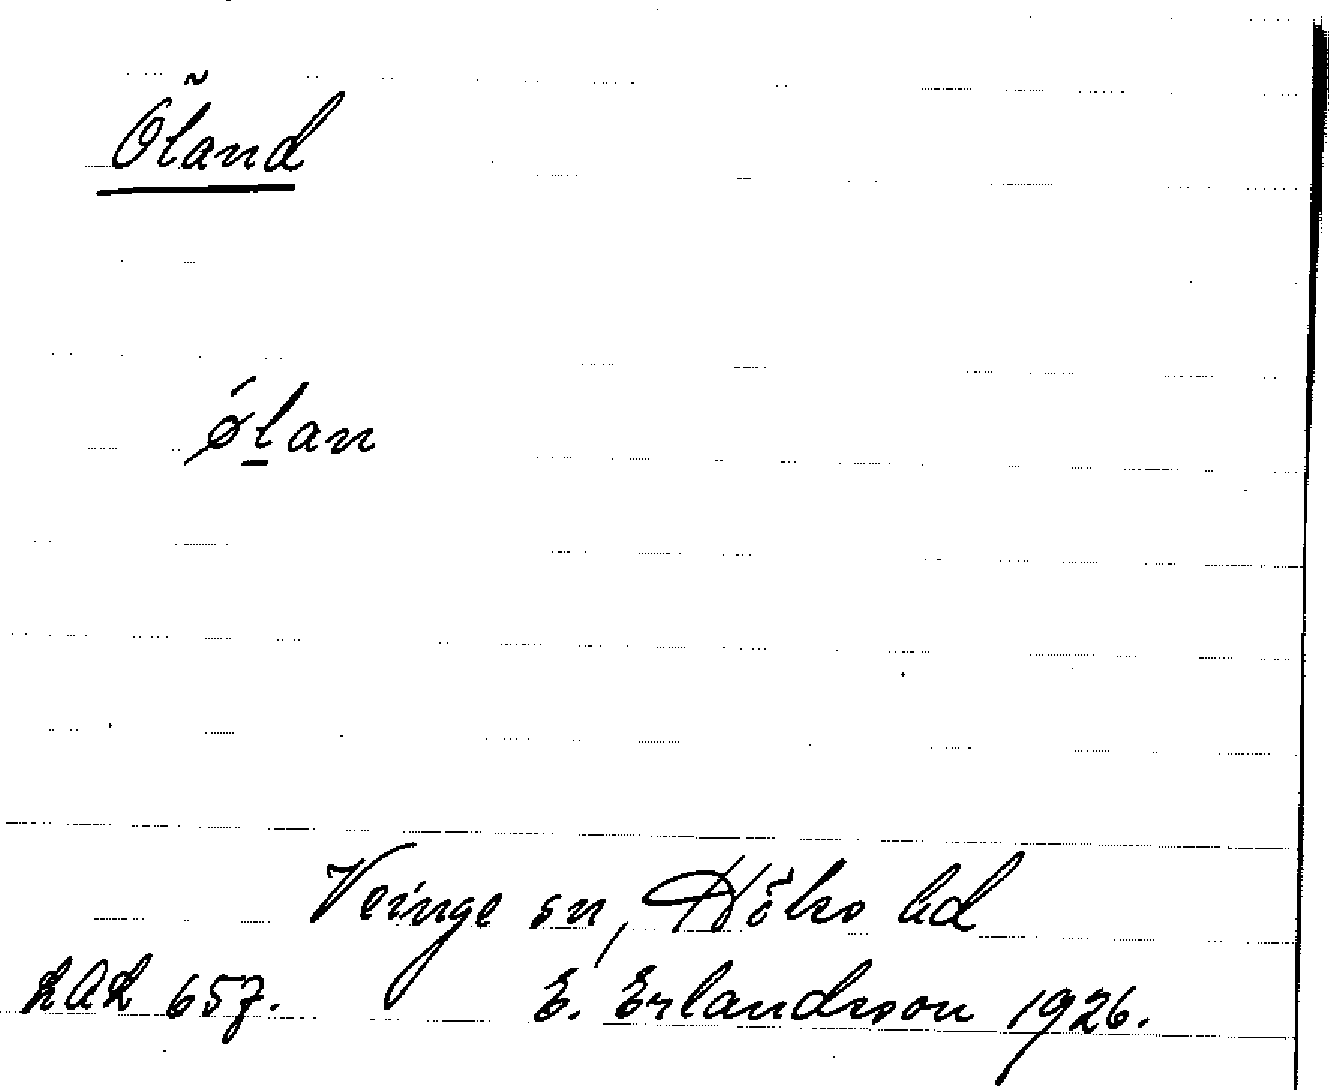 Öland
ǿlan
Veinge sn, Höks hd
LAL 657. E. Erlandsson 1926.